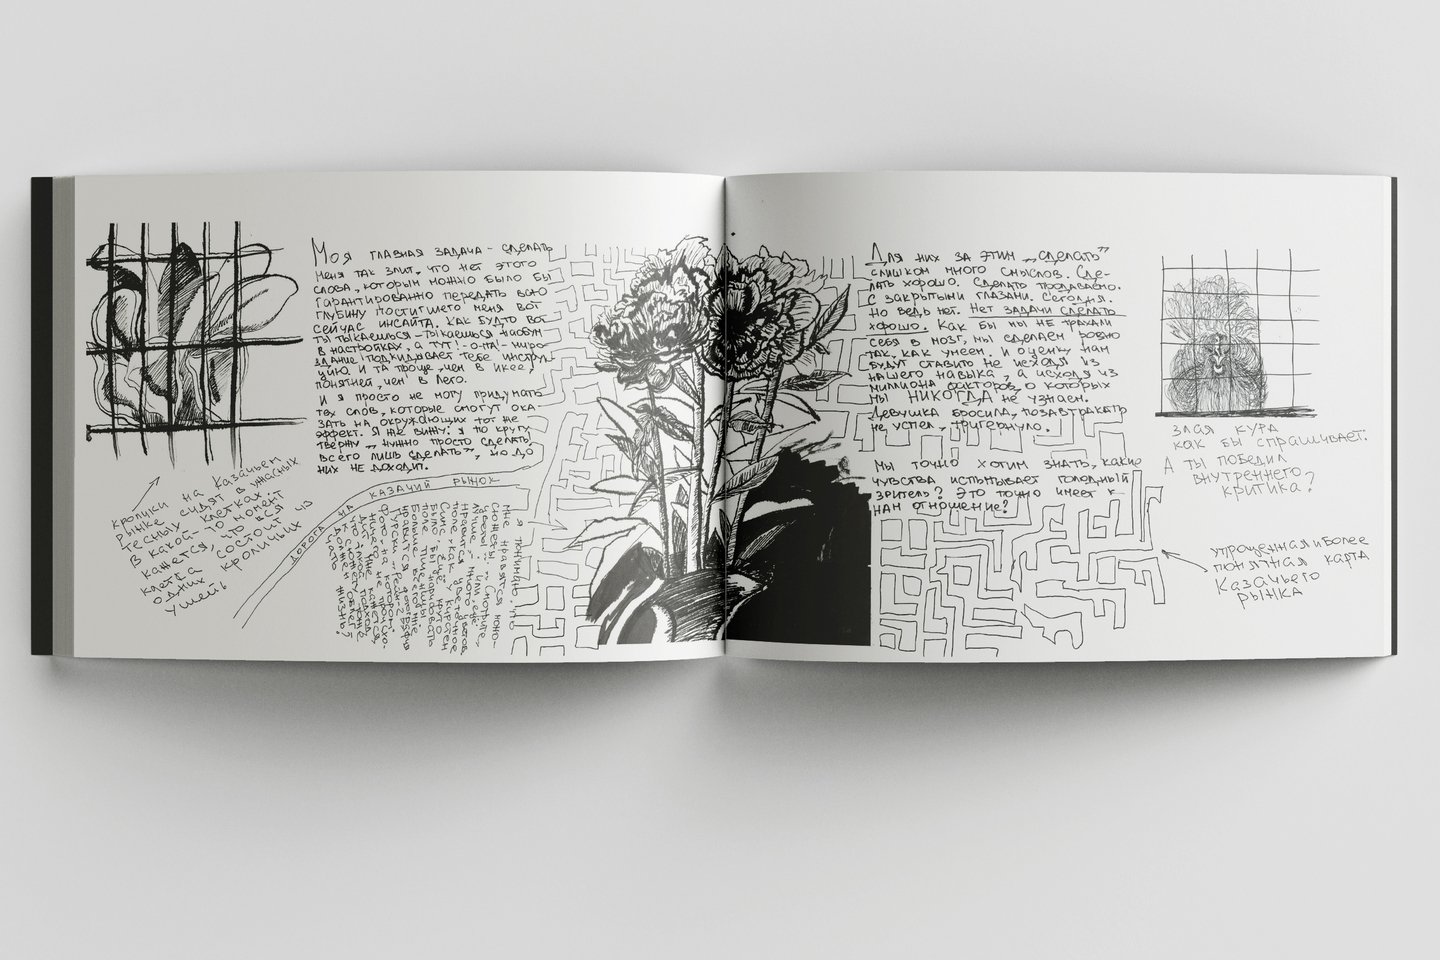 Моя главная задача - сделать
Меня так злит, что нет этого
слова, которым можно было бы
гарантированно передать всю
глубину постигшего меня вот
сейчас инсайта. Как будто вот
ты тыкаешься - тыкаешься наобум
в настройках, а тут! - о-па! - миро-
здание подкидывает тебе инструк-
цию и та проще, чем в икее,
понятней, чем в лего.
И я просто не могу придумать
тех слов, которые смогут ока-
зать на окружающих тот же
эффект. Я как вижу: я по кругу
твержу „нужно просто сделать,
всего лишь сделать", но до
них не доходит.
кролики на Казачьем
рынке сидят в ужасных
тесных клетках.
В какой-то момент
кажется, что вся
клетка состоит из
одних кроличьих
ушей
дорога на
казачий рынок
я понимаю, что
мне нравятся
сюжеты
нравится много цветов
поле, как цветочное
было бы круто
поле
больше всего мне
нравится
фото, на котором
ничего не происхо-
дит
жизнь?
Для них за этим „сделать"
слишком много смыслов. Сде-
лать хорошо. Сделать продаваемо.
С закрытыми глазами. Сегодня.
Но ведь нет. Нет задачи сделать
хорошо. Как бы мы не трахали
себя в мозг, мы сделаем ровно
так, как умеем. И оценку нам
будут ставить не исходя из
нашего навыка, а исходя из
миллиона факторов, о которых
мы НИКОГДА не узнаем.
Девушка бросила, позавтракать
не успел, тригернуло.
Мы точно хотим знать, какие
чувства испытывает голодный
зритель? Это точно имеет к
нам отношение?
злая кура
как бы спрашивает:
А ты победил
внутреннего
критика?
упрощенная и более
понятная карта
Казачьего
рынка